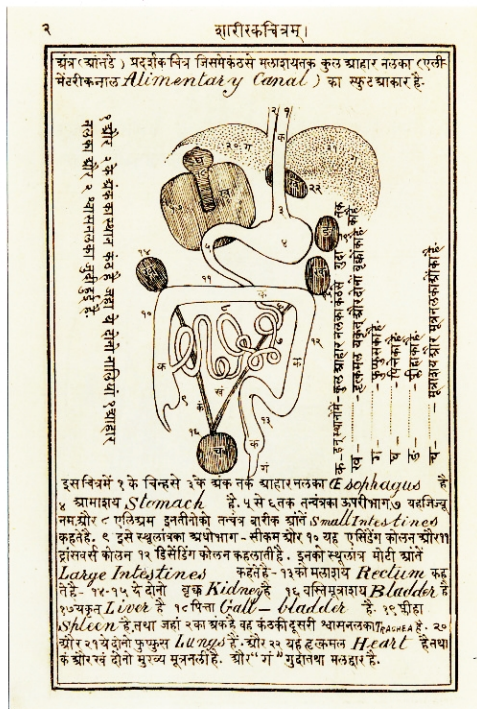 २
शारीरकचित्रम्।
अंत्र (आंतडे) प्रदर्शक चित्र जिसमेकंठसे मलाशयतक कुल आहार नलका (एली-
मेंटरीकनाल Alimentary Canal) का स्फुट आकार है-
१ और २ के अंकका स्थान कंठ है जहां ये दोनो नालियां १ आहार
नलका और २ श्वासनलका जुडी हुई हैं.
क- इनस्थानोंमें- कुल आहार नलका कंठसे गुदा तक
ख- हृत्कमल यकृत और दोनों वृक्कोंका है.
ग- फुप्फुसका है.
घ- पित्तेका है.
ङ- प्लीहाका है.
च- मूत्राशय और मूत्रनलका
इसचित्रमें १ के चिन्हसे ३के अंक तक आहारनलका Œsophagus है
४ आमाशय Stomach है. ५ से ६ तक तन्वंत्रका ऊपरीभाग ७ यहजिजू
नम और ८ एलिअम इनतीनोको तन्वंत्र बारीक आंतें small Intestines
कहतेहैं. ९ इसे स्थूलांत्रका अधोभाग - सीकम और १० यह एसिंडिंग कोलन और ११
ट्रांसवर्स कोलन १२ डिसेंडिंग कोलन कहलातीहै. इनको स्थूलांत्र मोटी आंतें
Large Intestines कहतेहैं - १३ को मलाशय Rectum कह
तेहैं - १४-१५ ये दोनों वृक Kidney है १६ वस्तिमूत्राशय Bladder है
१७ यकृत Liver है १८ पित्ता Gall-bladder है. १९ प्लीहा
Spleen है. तथा जहां २का अंकहै वह कंठकी दूसरी श्वासनलका TRACHEA है. २०
और २१ ये दोनो फुप्फुस Lungs हैं. और २२ यह हृत्कमल Heart है तथा
कं और खं दोनो मुख्य मूत्रनली हैं. और "गं" गुदा तथा मलद्वार है.